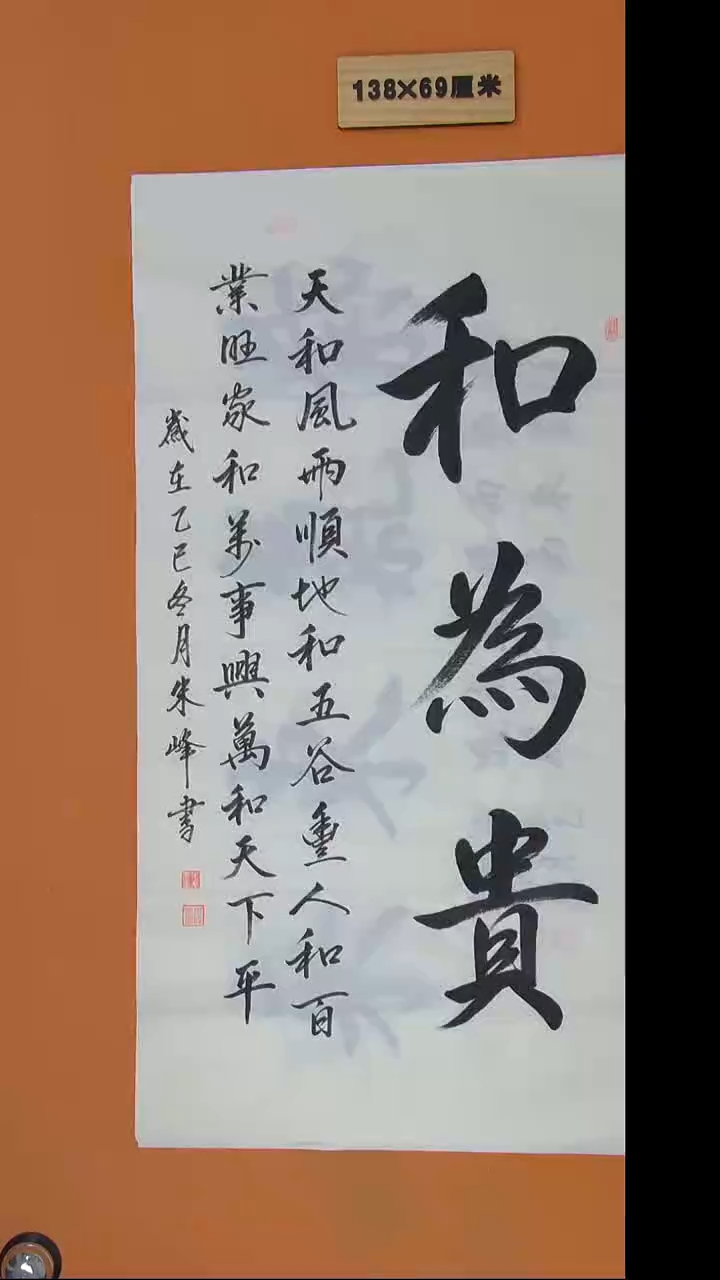 138×69厘米
和為貴
天和風雨順地和五谷豊人和百
業旺家和萬事興萬和天下平
歲在乙巳冬月朱峰書